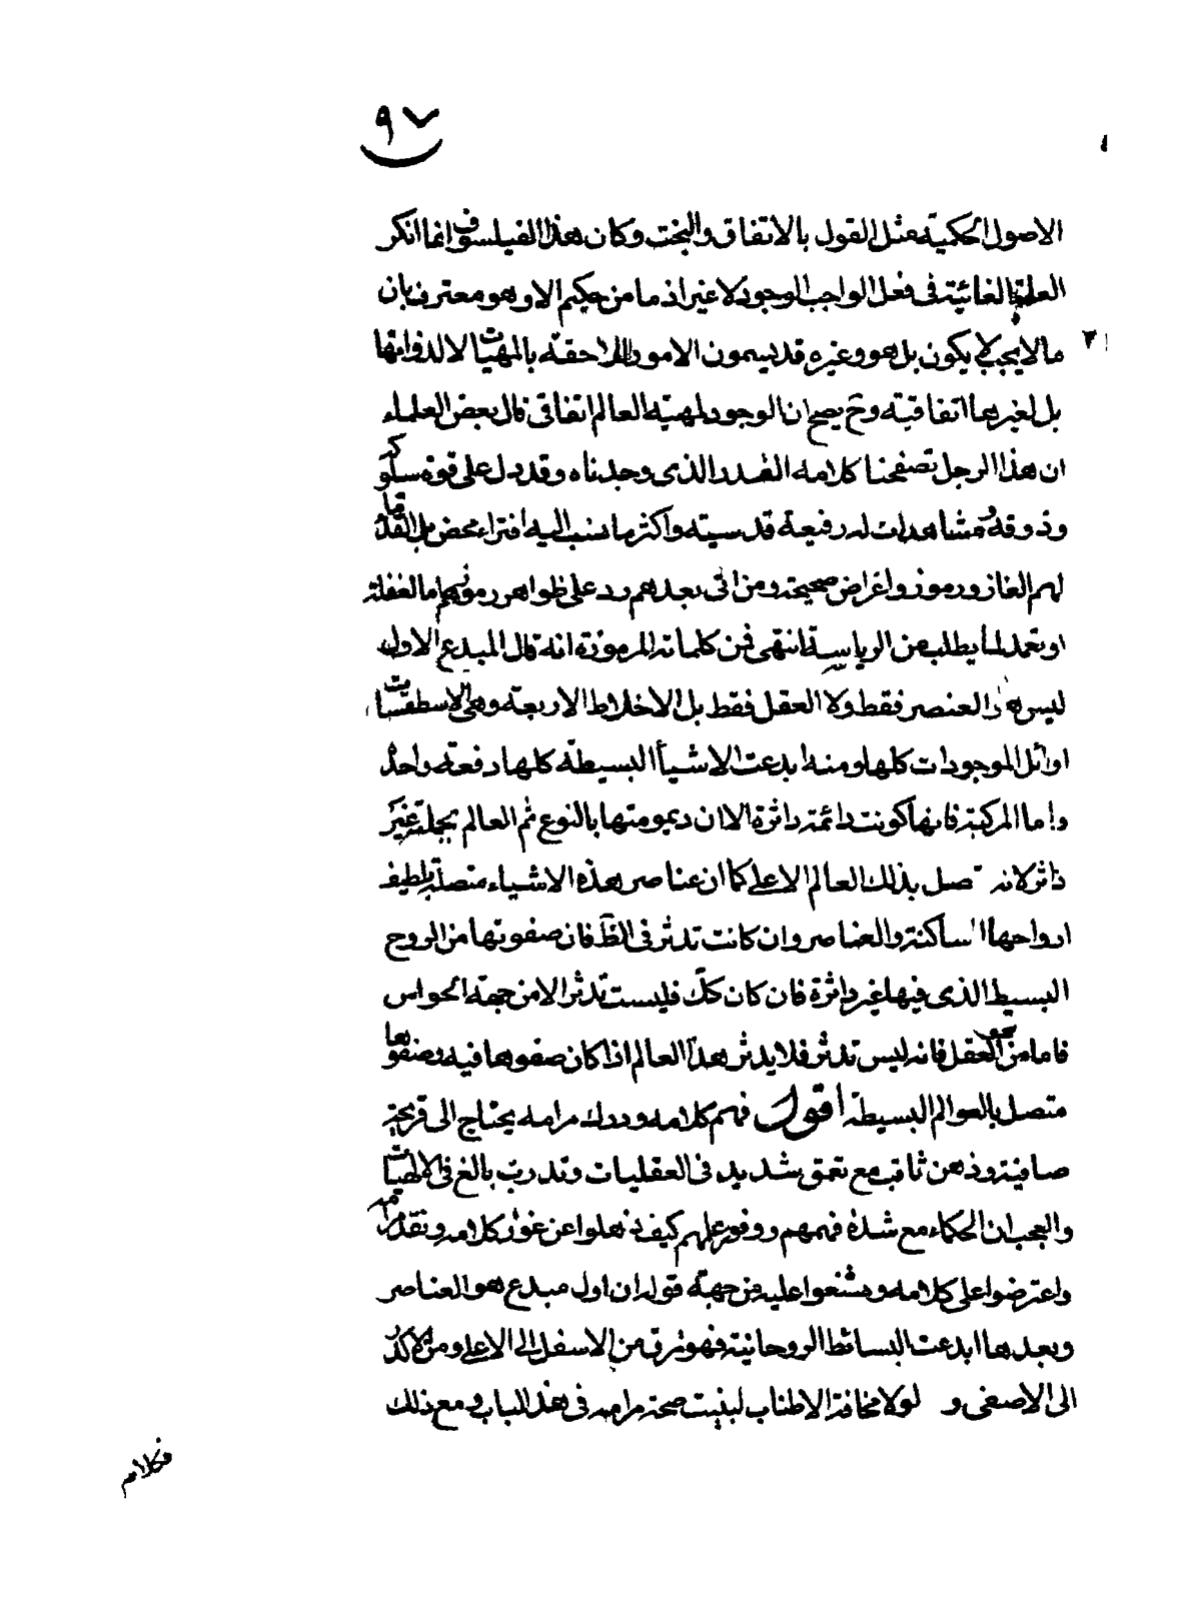 ٩٧
الاصول الحكمية مثل القول بالاتفاق والبخت وكان هذا الفيلسوف انما انكر
العلة الغائية فى فعل الواجب الوجود لا غير اذ ما من حكيم الا وهو معترف بان
ما لا يجب لا يكون بل هو وغيره قد يسمون الامور اللاحقة بالمهيات لا لذواتها
بل لغيرها اتفاقية وح يصح ان الوجود لمهية العالم اتفاقى قال بعض العلماء
ان هذا الرجل تصفحنا كلامه القدر الذى وجدناه وقد دل على قوة سلوكه
وذوقه ومشاهدات له رفيعة قدسية واكثر ما نسب اليه افتراء محض بل القدماء
لهم الغاز ورموز واغراض صحيحة ومن اتى بعدهم رد على ظواهر رموزهم اما لغفلة
او تعمد لما يطلب من الرياسة انتهى فمن كلماته المرموزة انه قال المبدع الاول
ليس هو العنصر فقط ولا العقل فقط بل الاخلاط الاربعة وهى الاسطقسات
اوائل الموجودات كلها ومنه ابدعت الاشيأ البسيطة كلها دفعة واحدة
واما المركبة فانها كونت دائمة داثرة الا ان ديمومتها بالنوع ثم العالم بجملته غير
داثر لانه تصل بذلك العالم الاعلى كما ان عناصر هذه الاشياء متصلة بلطيف
ارواحها الساكنة والعناصر وان كانت تدثر فى الظ فان صفوتها من الروح
البسيط الذى فيها غير داثرة فان كان كك فليست تدثر الا من جهة الحواس
فاما من نحو العقل فانه ليس تدثر فلا يدثر هذا العالم اذا كان صفوها فيه وصفوها
متصل بالعوالم البسيطة اقول فهم كلامه ودرك مرامه يحتاج الى قريحة
صافية وذهن ثاقب مع تعمق شديد فى العقليات وتدرب بالغ فى الالهيات
والعجب ان الحكماء مع شدة فهمهم ووفور علمهم كيف ذهلوا عن غور كلامه ونقد مرامه
واعترضوا على كلامه وشنعوا عليه من جهة قوله ان اول مبدع هو العناصر
وبعدها ابدعت البسائط الروحانية فهو ترق من الاسفل الى الاعلى ومن الاكدر
الى الاصفى و لولا مخافة الاطناب لبينت صحة مرامه فى هذا الباب ومع ذلك
فكلامه